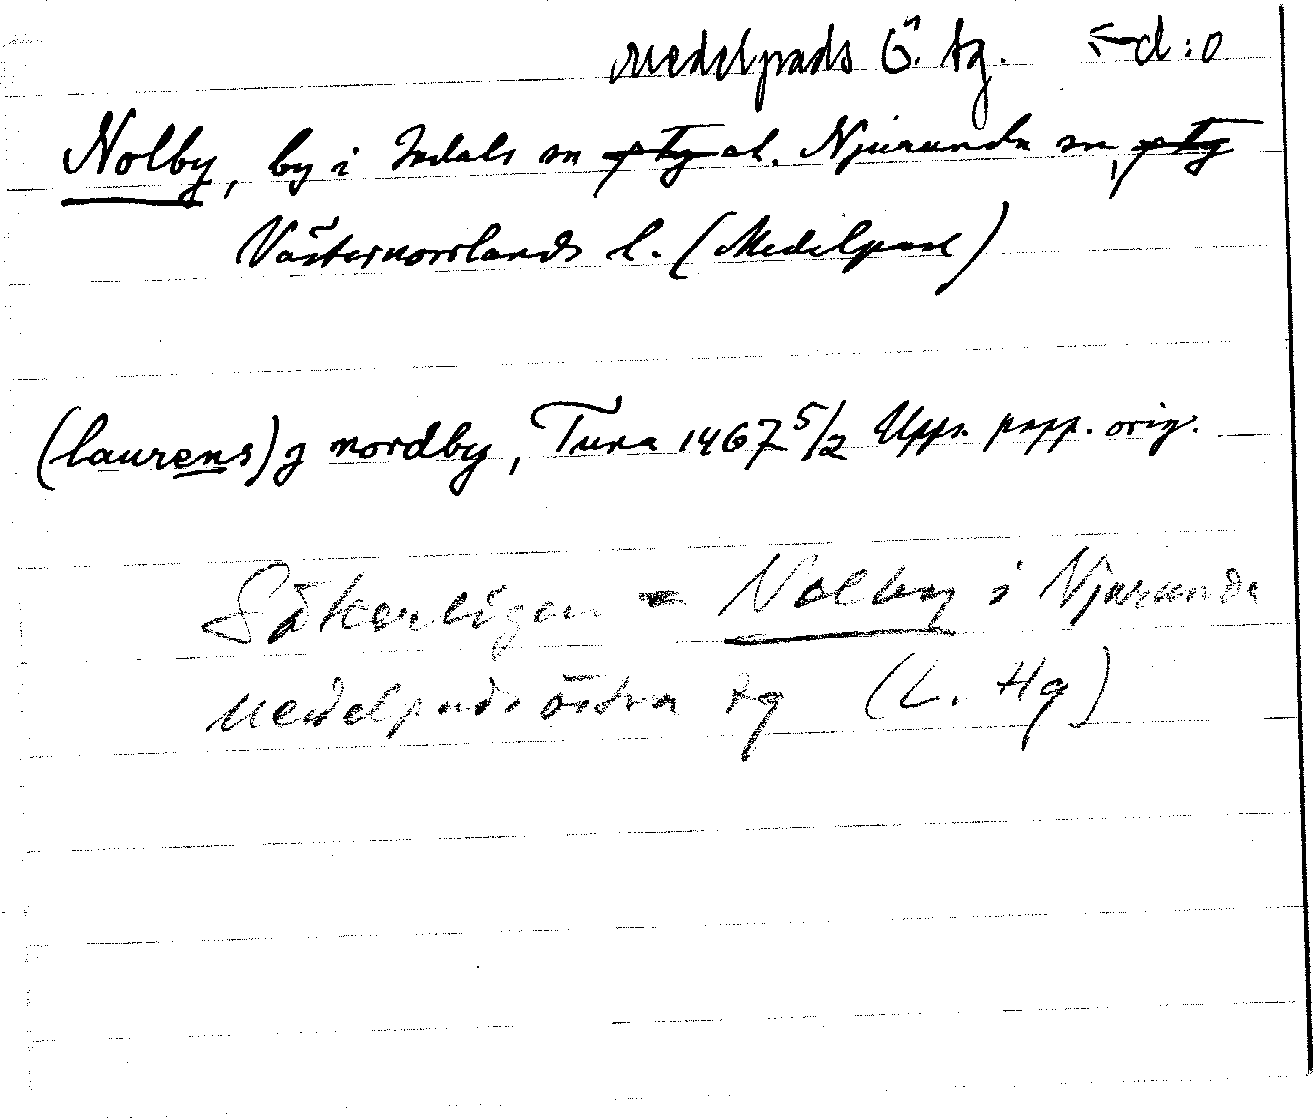 Medelpads Ö. tg. ← d:o
Nolby, by i Indals sn o tg el. Njurunda sn, o tg
Västernorrlands l. (Medelpad)
(laurens) j nordby, Tuna 1467 5/2 Upps. papp. orig.
Säkerligen = Nolby i Njurunda
Medelpads östra tg (L. Hg)